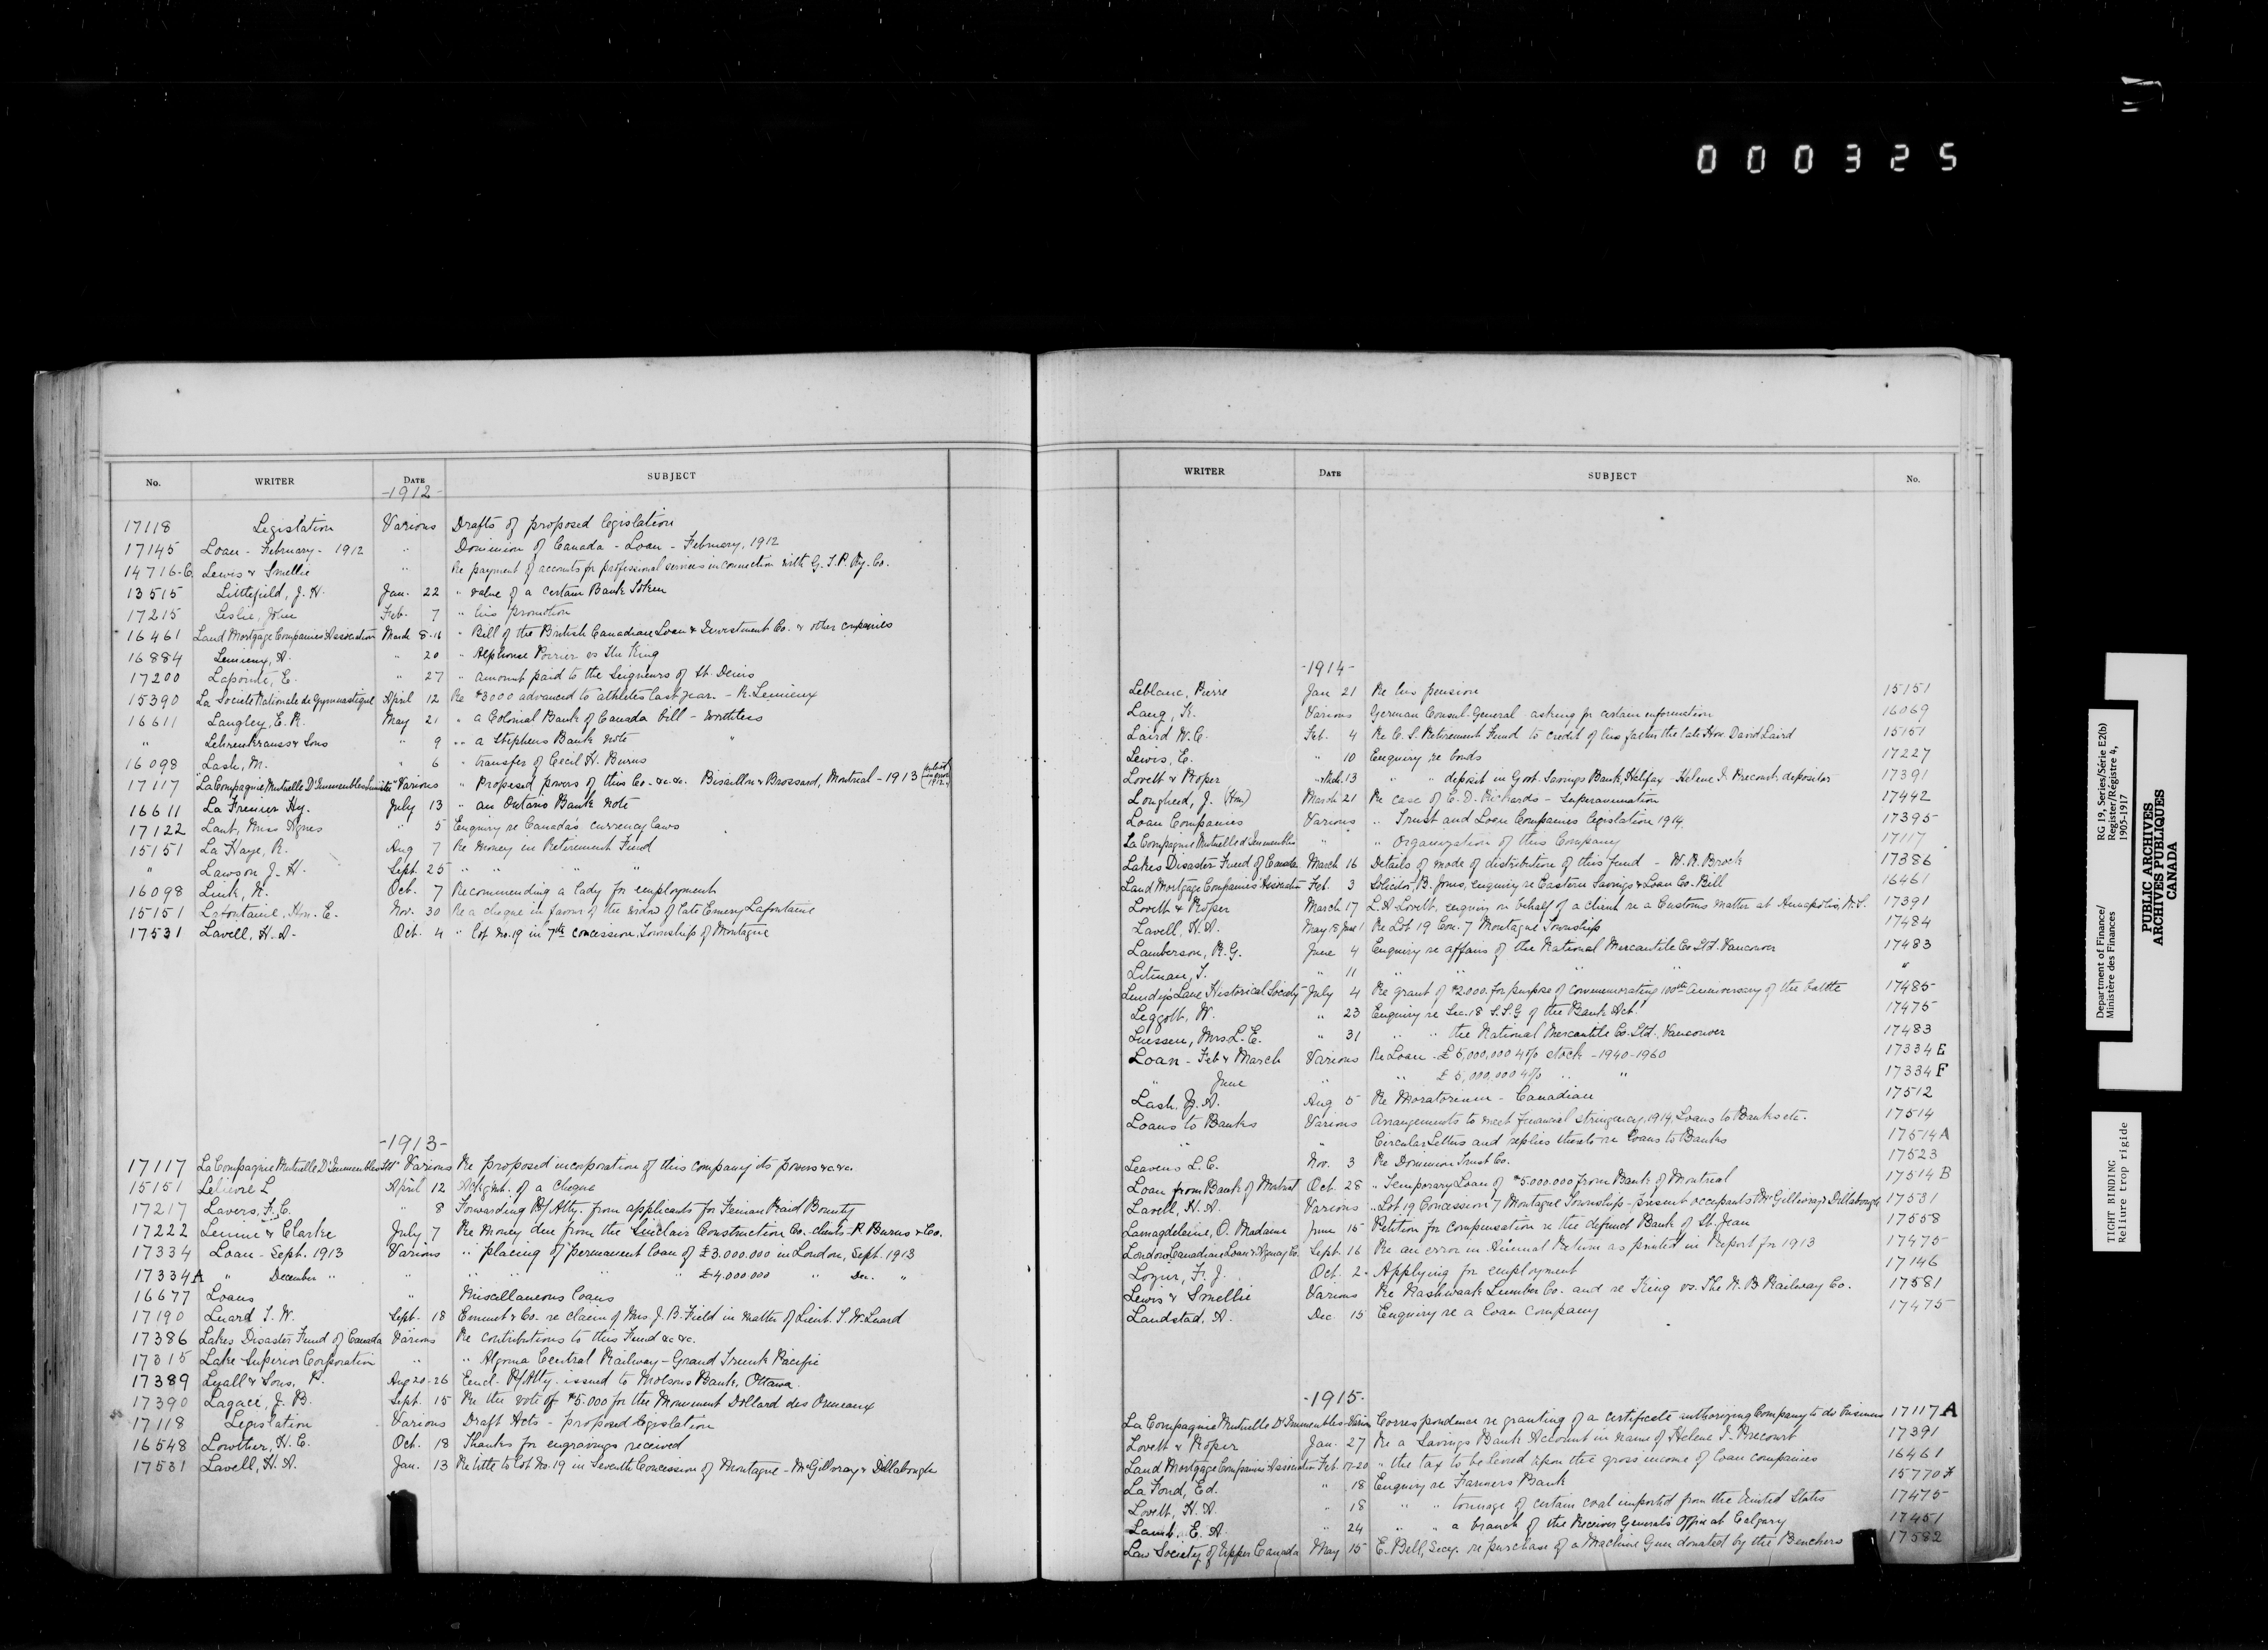 000325
No. WRITER DATE SUBJECT
-1912-
17118 Legislation Various Drafts of proposed legislation
17145 Loan - February - 1912 " Dominion of Canada - Loan - February, 1912
14716-C. Lewis & Smellie " Re payment of accounts for professional services in connection with G.T.P. Ry. Co.
13515 Littlefield, J. H. Jan. 22 " value of a certain Bank Token
17215 Leslie, John Feb. 7 " his promotion
16461 Land Mortgage Companies Association March 8-16 " Bill of the British Canadian Loan & Investment Co. & other companies
16884 Lemieux, A. " 20 " Alphonse Poirier vs The King
17200 Lapointe, E. " 27 " amount paid to the Seigneurs of St. Denis
15390 La Societe Nationale de Gymnastique April 12 Re $3000 advanced to athletes last year - R. Lemieux
16611 Langley, E. R. May 21 " a Colonial Bank of Canada bill - worthless
" Lehrenkrauss & Sons " 9 " a Stephens Bank note "
16098 Lash, M. " 6 " transfer of Cecil H. Burns
17117 "La Compagnie Mutuelle D'Immeubles Limitée" Various " Proposed powers of this Co. &c. &c. Bisaillon & Brossard, Montreal - 1913
16611 La Freniere Hy. July 13 " an Ontario Bank note
17122 Laut, Miss Agnes " 5 Enquiry re Canada's currency laws
15151 La Haye, R. Aug 7 Re Money in Retirement Fund
" Lawson J. H. Sept. 25 " " " "
16098 Link, N. Oct. 7 Recommending a lady for employment
15151 Lafontaine, Hon. E. Nov. 30 Re a cheque in favour of the widow of late Emery Lafontaine
17531 Lavell, H. A. Oct. 4 " Lot No. 19 in 7th concession, Township of Montague
-1913-
17117 La Compagnie Mutuelle D'Immeubles Ltd" Various Re proposed incorporation of this company its powers &c. &c.
15151 Lelievre L April 12 Ackgmt. of a cheque
17217 Lavers, F. C. " 8 Forwarding P/Atty. from applicants for Fenian Raid Bounty
17222 Lennie & Clarke July 7 Re Money due from the Sinclair Construction Co. clients - P. Burns & Co.
17334 Loan - Sept. 1913 Various " placing of permanent loan of £3.000.000 in London, Sept. 1913
17334A " December " " " " " " £4.000.000 " Dec. "
16677 Loans " Miscellaneous Loans
17190 Luard T. W. Sept. 18 Emmet & Co. re claim of Mrs J. B. Field in matter of Lieut. T. W. Luard
17386 Lakes Disaster Fund of Canada Various Re contributions to this Fund &c &c.
17315 Lake Superior Corporation " " Algoma Central Railway - Grand Trunk Pacific
17389 Lyall & Sons, P. Aug 20-26 Encl. P/Atty. issued to Molsons Bank, Ottawa.
17390 Lagacé, J. B. Sept. 15 Re the vote of $5.000 for the Monument Dollard des Ormeaux
17118 Legislation Various Draft Acts - proposed legislation
16548 Lowther, H. C. Oct. 18 Thanks for engravings received
17531 Lavell, H. A. Jan. 13 Re title to Lot No. 19 in Seventh Concession of Montague - McGillivray & Dillabough
WRITER DATE SUBJECT No.
-1914-
Leblanc, Pierre Jan 21 Re his pension 15151
Lang, K. Various German Consul-General asking for certain information 16069
Laird W. C. Feb. 4 Re C. S. Retirement Fund to credit of his father the late Hon. David Laird 15151
Lewis, E. " 10 Enquiry re bonds 17227
Lovett & Roper " Mch. 13 " " deposit in Govt. Savings Bank, Halifax - Helene I. Precourt, depositor 17391
Lougheed, J. (Hon.) March 21 Re case of C. D. Richards - Superannuation 17442
Loan Companies Various " Trust and Loan Companies legislation 1914. 17395
La Compagnie Mutuelle d'Immeubles " " Organization of this Company 17117
Lakes Disaster Fund of Canada March 16 Details of mode of distribution of this fund - W. R. Brock 17386
Land Mortgage Companies' Association Feb. 3 Solicitor, B. Jones, enquiry re Eastern Savings & Loan Co. Bill 16461
Lovett & Roper March 17 L. A. Lovett, enquiry on behalf of a client re a Customs matter at Annapolis, N.S. 17391
Lavell, H. A. May 18 June 1 Re Lot 19 Con. 7 Montague Township 17484
Lamberson, R. G. June 4 Enquiry re affairs of the National Mercantile Co. Ltd. Vancouver 17483
Litman, T. " 11 " " " " "
Lundy's Lane Historical Society July 4 Re grant of $2.000. for purpose of commemorating 100th anniversary of the battle 17485
Leggott, W. " 23 Enquiry re Sec. 18 S.S.G of the Bank Act. 17475
Luessen, Mrs L. E. " 31 " " the National Mercantile Co. Ltd., Vancouver 17483
Loan - Feb & March Various Re Loan - £5,000,000 4% stock - 1940-1960 17334 E
" June " " £5,000,000 4% " " 17334 F
Lash, Z. A. Aug 5 Re Moratorium - Canadian 17512
Loans to Banks Various Arrangements to meet financial stringency, 1914, Loans to Banks etc. 17514
" " Circular Letters and replies thereto re Loans to Banks 17514 A
Leavens L. C. Nov. 3 Re Dominion Trust Co. 17523
Loan from Bank of Montreal Oct. 28 " Temporary Loan of $5.000.000 from Bank of Montreal 17514 B
Lavell, H. A. Various " Lot 19 Concession 7 Montague Township - present occupants McGillivray & Dillabough 17531
Lamagdeleine, O. Madame June 15 Petition for compensation re the defunct Bank of St. Jean 17558
London & Canadian Loan & Agency Co. Sept. 16 Re an error in Annual Return as printed in Report for 1913 17475
Lozier, F. J. Oct. 2 Applying for employment 17146
Lewis & Smellie Various Re Nashwaak Lumber Co. and re King vs. The N. B. Railway Co. 17581
Landstad, A. Dec 15 Enquiry re a loan company 17475
-1915-
La Compagnie Mutuelle D'Immeubles Various Correspondence re granting of a certificate authorizing Company to do business 17117 A
Lovett & Roper Jan. 27 Re a Savings Bank Account in name of Helene I. Precourt 17391
Land Mortgage Companies Association Feb. 17-20 " the tax to be levied upon the gross income of loan companies 16461
La Fond, Ed. " 18 Enquiry re Farmers Bank 15770 F
Lovett, H. A. " 18 " " tonnage of certain coal imported from the United States 17475
Lamb, E. A. " 24 " " a branch of the Receiver General's Office at Calgary 17451
Law Society of Upper Canada May 15 E. Bell, Secy. re purchase of a Machine Gun donated by the Benchers 17582
Department of Finance/
Ministère des Finances
RG 19, Series/Série E2(b)
Register/Régistre 4,
1905-1917
PUBLIC ARCHIVES
ARCHIVES PUBLIQUES
CANADA
TIGHT BINDING
Reliure trop rigide